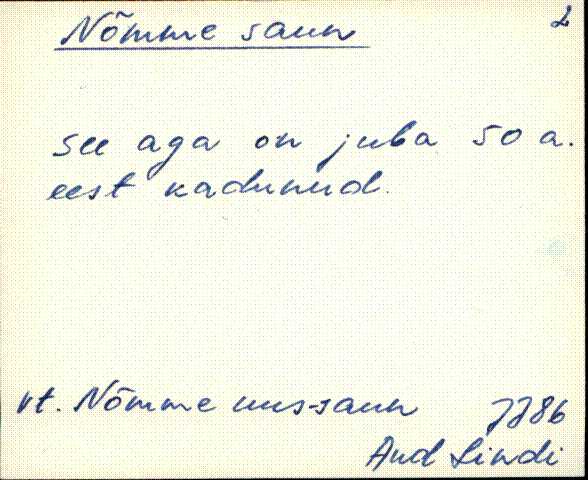 Nõmme saun 2
see aga on juba 50 a.
eest kadunud.
vt. Nõmme uus-saun
Aud Lindi